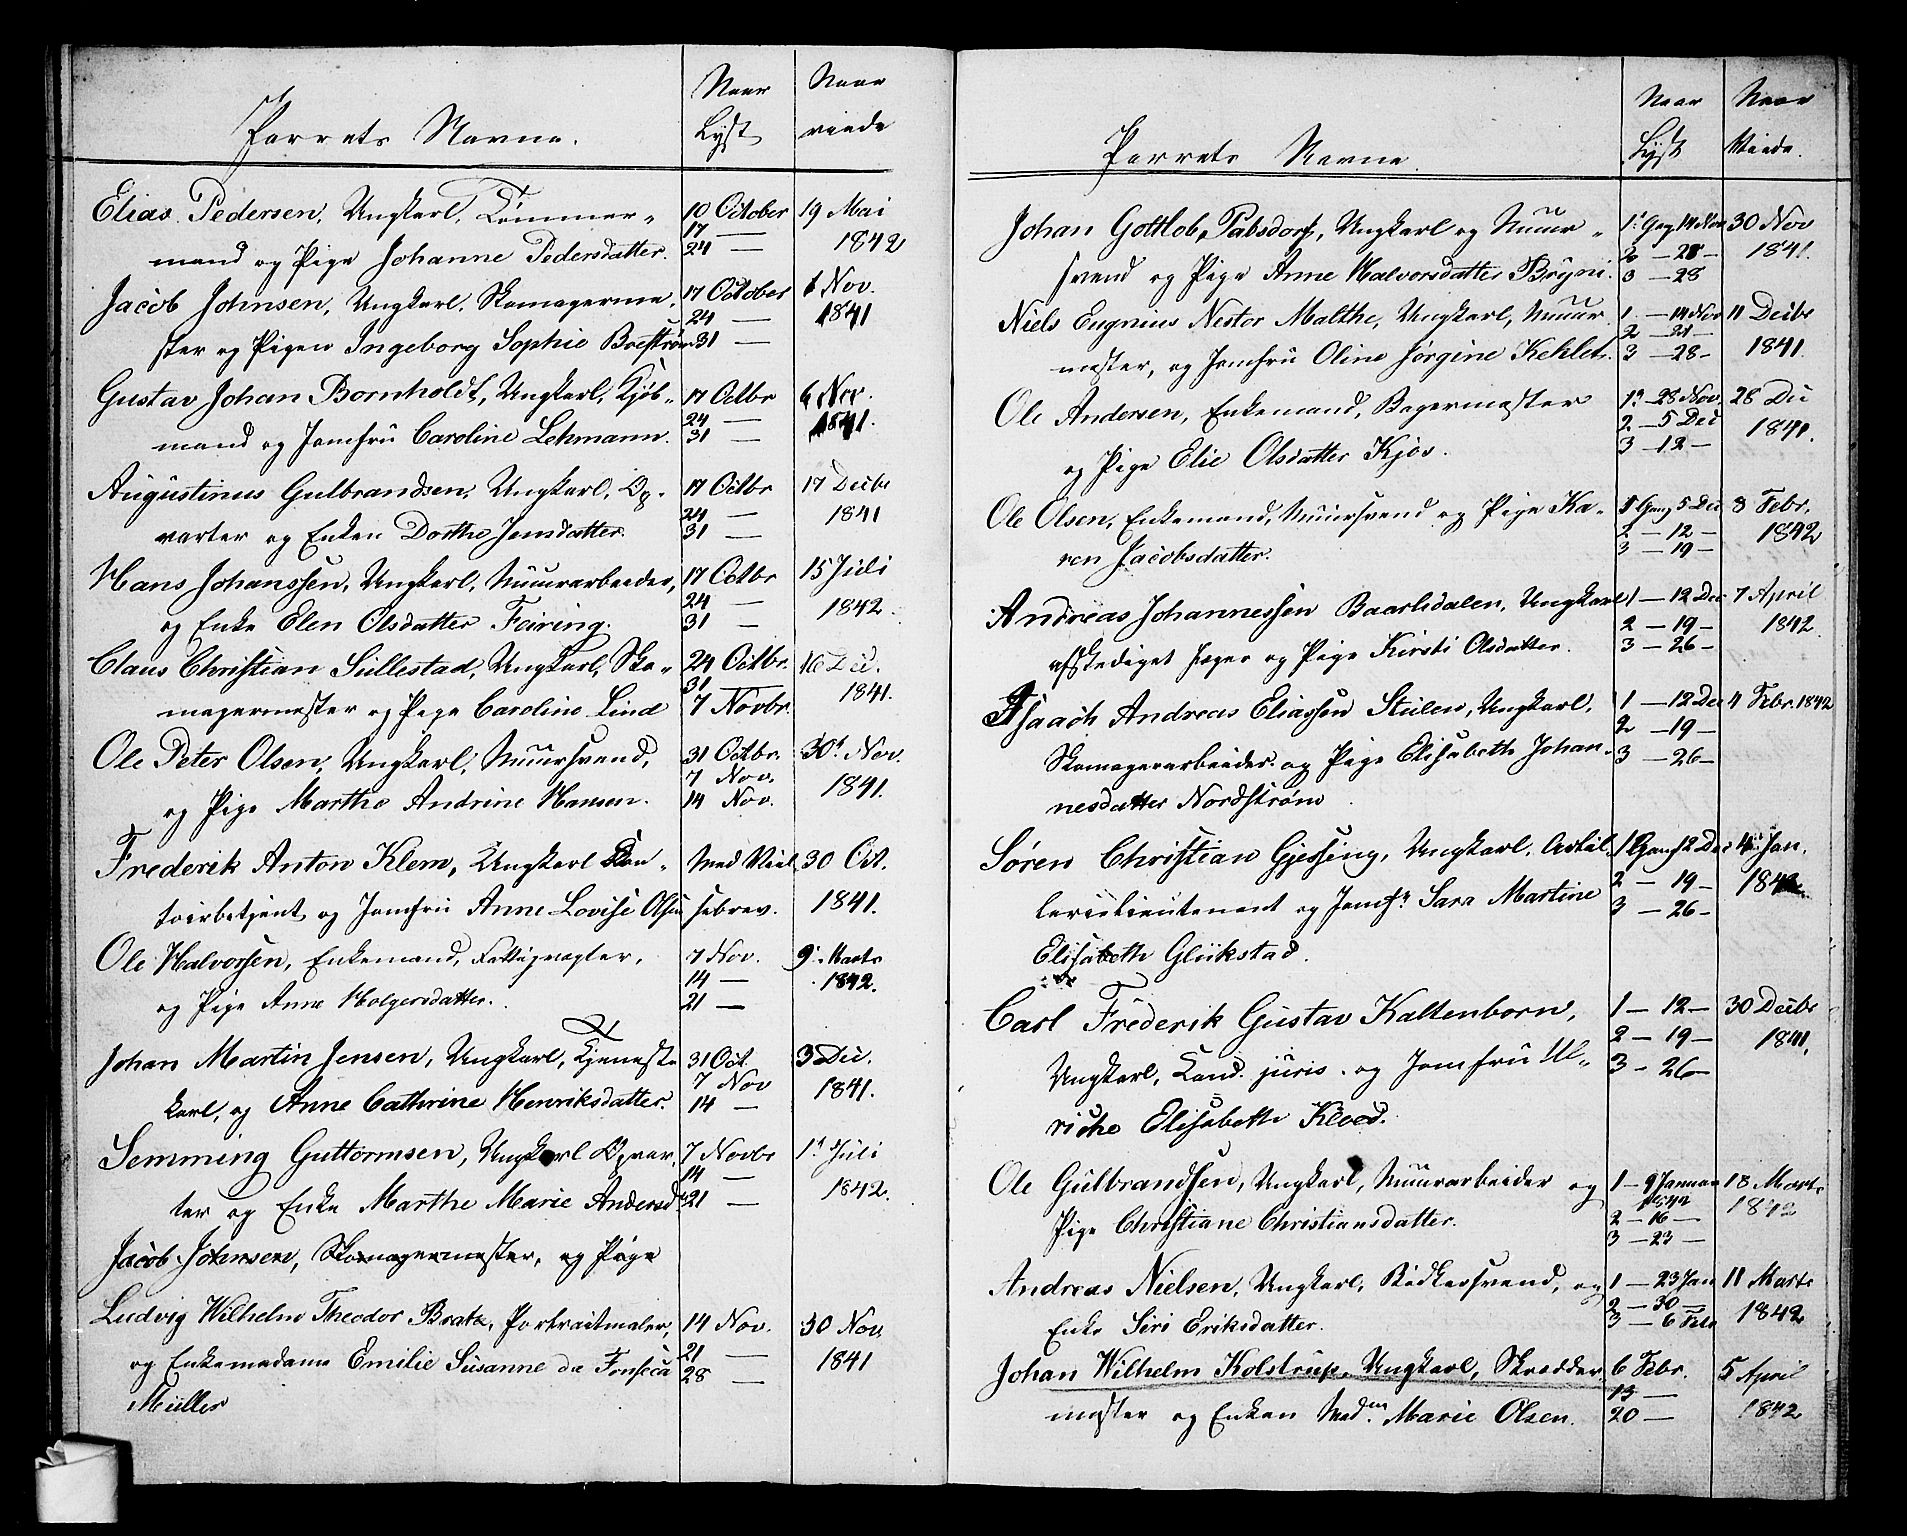 Parrets Navne. Naar Lyst Naar viede
Elias Pedersen, Ungkarl, Tømmer- 10 October 19 Mai
mand og Pige Johanne Pedersdatter. 17 — 24 — 1842
Jacob Johnsen, Ungkarl, Skomagerme- 17 October 6 Nov.
ster og Pigen Ingeborg Sophie 24 — 31 — 1841
Gustav Johan Bornholdt, Ungkarl, Kjøb- 17 Octbr 6 Nov.
mand og Jomfru Caroline Lehmann. 24 — 31 — 1841.
Augustinus Gulbrandsen, Ungkarl, Op- 17 Octbr 17 Decbr
varter og Enken Dorthe Jensdatter. 24 — 31 — 1841
Hans Johanssen, Ungkarl, Muurarbeider, 17 Octbr 15 Juli
og Enke Elen Olsdatter Feiring. 24 — 31 — 1842.
Claus Christian Sullestad, Ungkarl, Sko- 24 Octbr. 16 Dec.
magermester og Pige Caroline Lind 31 — 7 Novbr. 1841.
Ole Peter Olsen, Ungkarl, Muursvend, 31 Octbr. 30t Nov.
og Pige Marthe Andrine Hansen. 7 Nov. 14 Nov. 1841.
Frederik Anton Klem, Ungkarl Con- Med Viel- 30 Oct.
toirbetjent og Jomfru Anne Lovise Olsen sebrev. 1841.
Ole Halvorsen, Enkemand, Fattigvogter, 7 Nov. 9 Marts
og Pige Anne Holgersdatter. 14 — 21 — 1842.
Johan Martin Jensen, Ungkarl, Tjeneste- 31 Oct 3 Dec.
karl, og Anne Cathrine Henriksdatter. 7 Nov 14 — 1841.
Semming Guttormsen, Ungkarl Opvar- 7 Novbr 1t Juli
ter og Enke Marthe Marie Andersd. 14 — 21 — 1842.
Jacob Johnsen, Skomagermester, og Pige
Ludvig Wilhelm Theodor Bratz, Portraitmaler, 14 Nov. 30 Nov.
og Enkemadame Emilie Susanne da Fonseca 21 — 28 — 1841
Müller
Parrets Navne. Naar Lyst Naar Viede.
Johan Gottlob Pabsdorf, Ungkarl og Muur- 1. Gang 14 Nov 30 Nov
svend og Pige Anne Halvorsdatter 2 — 21 — 3 — 28 1841.
Niels Eugnius Nestor Malthe, Ungkarl, Muur- 1 — 14 Nov 11 Decbr
mester, og Jomfru Oline Jørgine Kehlet. 2 — 21 — 3 — 28 — 1841.
Ole Andersen, Enkemand, Bagermester 1. — 28 Nov. 28 Dec
og Pige Elie Olsdatter Kjøs. 2 — 5 Dec 3 — 12 — 1841.
Ole Olsen, Enkemand, Muursvend og Pige Ka- 1 Gang 5 Dec 8 Febr.
ren Jacobsdatter. 2 — 12 — 3 — 19 — 1842
Andreas Johannessen Baarlidalen, Ungkarl 1 — 12 Dec 7 April
afskediget Jæger og Pige Kirsti Olsdatter. 2 — 19 — 3 — 26 — 1842.
Isaach Andreas Eliassen Stulen, Ungkarl, 1 — 12 Dec 4 Febr. 1842
Skomagerarbeider og Pige Elisabeth Johan- 2 — 19 — 3 — 26 —
nesdatter Nordstrøm.
Søren Christian Gjessing, Ungkarl, Artil- 1 Gang 12 Dec Jan.
lerielieutenant og Jomfr. Sara Martine 2 — 19 — 3 — 26 — 1842
Elisabeth Glükstad.
Carl Frederik Gustav Kaltenborn, 1 — 12 — 30 Decbr
Ungkarl, Cand. juris. og Jomfru Ul- 2 — 19 — 3 — 26 — 1841.
riche Elisabeth Kloed.
Ole Gulbrandsen, Ungkarl, Muurarbeider og 1 — 9 Januar 1842 18 Marts
Pige Christiane Christiansdatter. 2 — 16 — 3 — 23 — 1842
Andreas Nielsen, Ungkarl, Bødkersvend, og 1 — 23 Jan 11 Marts
Enke Siri Eriksdatter. 2 — 30 — 3 — 6 Febr 1842
Johan Wilhelm Kolstrup, Ungkarl, Skrædder- 6 Febr. 5 April
mester og Enken Madm. Marie Olsen. 13 — 20 — 1842